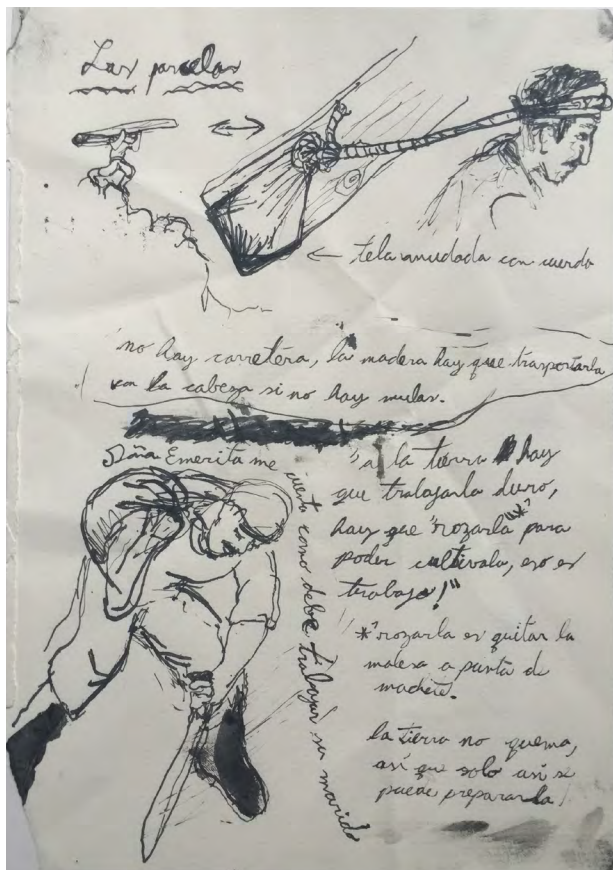 Las parcelas
tela anudada con cuerda
"no hay carretera, la madera hay que trasportarla
con la cabeza si no hay mulas.
Ñina Emerita me cuenta como debe trabajar su marido
"a la tierra hay
que trabajarla duro,
hay que "rozarla"* para
poder cultivala, eso es
trabajo!"
*"rozarla es quitar la
maleza a punta de
machete.
la tierra no quema,
así que solo así se
puede prepararla!